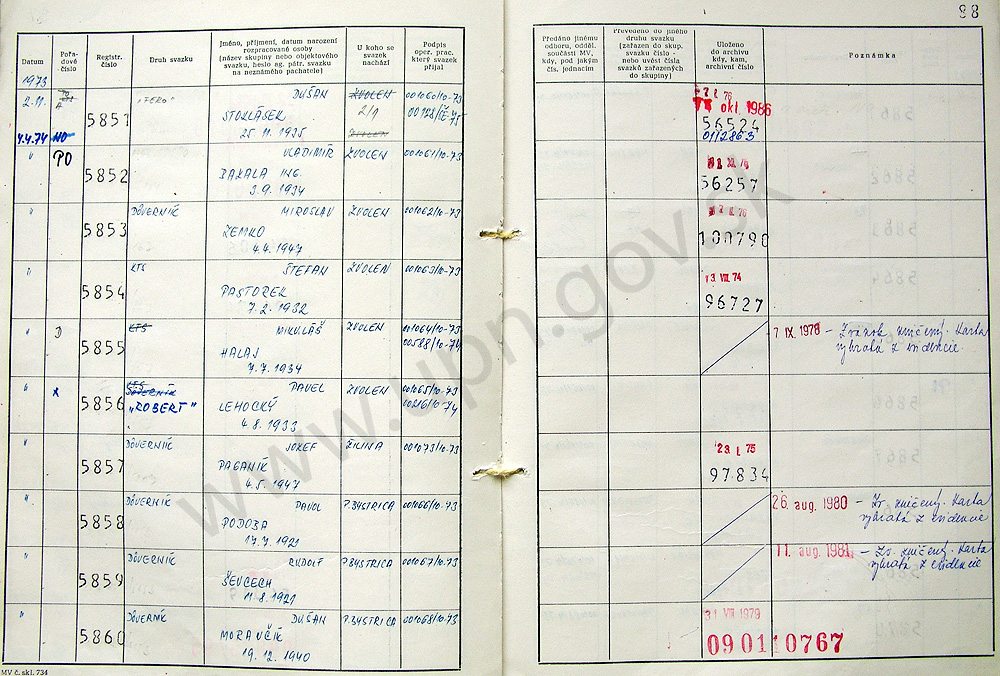 98
Datum
Pořa-
dové
číslo
Registr.
číslo
Druh svazku
Jméno, příjmení, datum narození
rozpracované osoby
(název skupiny nebo objektového
svazku, heslo ag. pátr. svazku
na neznámého pachatele)
U koho se
svazek
nachází
Podpis
oper. prac.
který svazek
přijal
Předáno jinému
odboru, odděl.
součásti MV,
kdy, pod jakým
čís. jednacím
Převedeno do jiného
druhu svazku
(zařazen do skup.
svazku číslo -
nebo uvést čísla
svazků zařazených
do skupiny)
Uloženo
do archivu
kdy, kam,
archivní číslo
Poznámka
1973
2.11.
A
4.4.74
5851
„FERO"
DUŠAN
STOKLÁSEK
25. 11. 1925
ZVOLEN
2/1
ZVOLEN
001060/10-73
okl. 1986
56524
01/2863
"
PO
5852
VLADIMÍR
BAKALA ING.
3.9. 1934
ZVOLEN
001061/10-73
56257
"
5853
DÔVERNÍK
MIROSLAV
ZEMKO
4.4. 1947
ZVOLEN
001062/10-73
100790
"
5854
KTS
ŠTEFAN
PASTOREK
7. 2. 1932
ZVOLEN
001063/10-73
3 VIII 74
96727
"
D
5855
KTS
MIKULÁŠ
HALAJ
7. 7. 1934
ZVOLEN
001064/10-73
00588/10-74
7 IX. 1978 - Zväzok zničený. Karta
vybratá z evidencie.
"
x
5856
KTS
DÔVERNÍK
„ROBERT"
PAVEL
LEHOCKÝ
4. 8. 1933
ZVOLEN
001065/10-73
"
5857
DÔVERNÍK
JOZEF
PAGANÍK
4. 5. 1947
ŽILINA
001073/10-73
29. I. 75
97834
"
5858
DÔVERNÍK
PAVOL
PODOBA
17. 7. 1921
P. BYSTRICA
001066/10-73
26. aug. 1980 - Zv. zničený. Karta
vybratá z evidencie
"
5859
DÔVERNÍK
RUDOLF
ŠEVCECH
11. 8. 1921
P. BYSTRICA
001067/10-73
11. aug. 1981 - Zv. zničený. Karta
vybratá z evidencie
"
5860
DÔVERNÍK
DUŠAN
MORAVČÍK
19. 12. 1940
P. BYSTRICA
001068/10-73
31 VIII 1979
090110767
MV č. skl. 734
www.upn.gov.sk